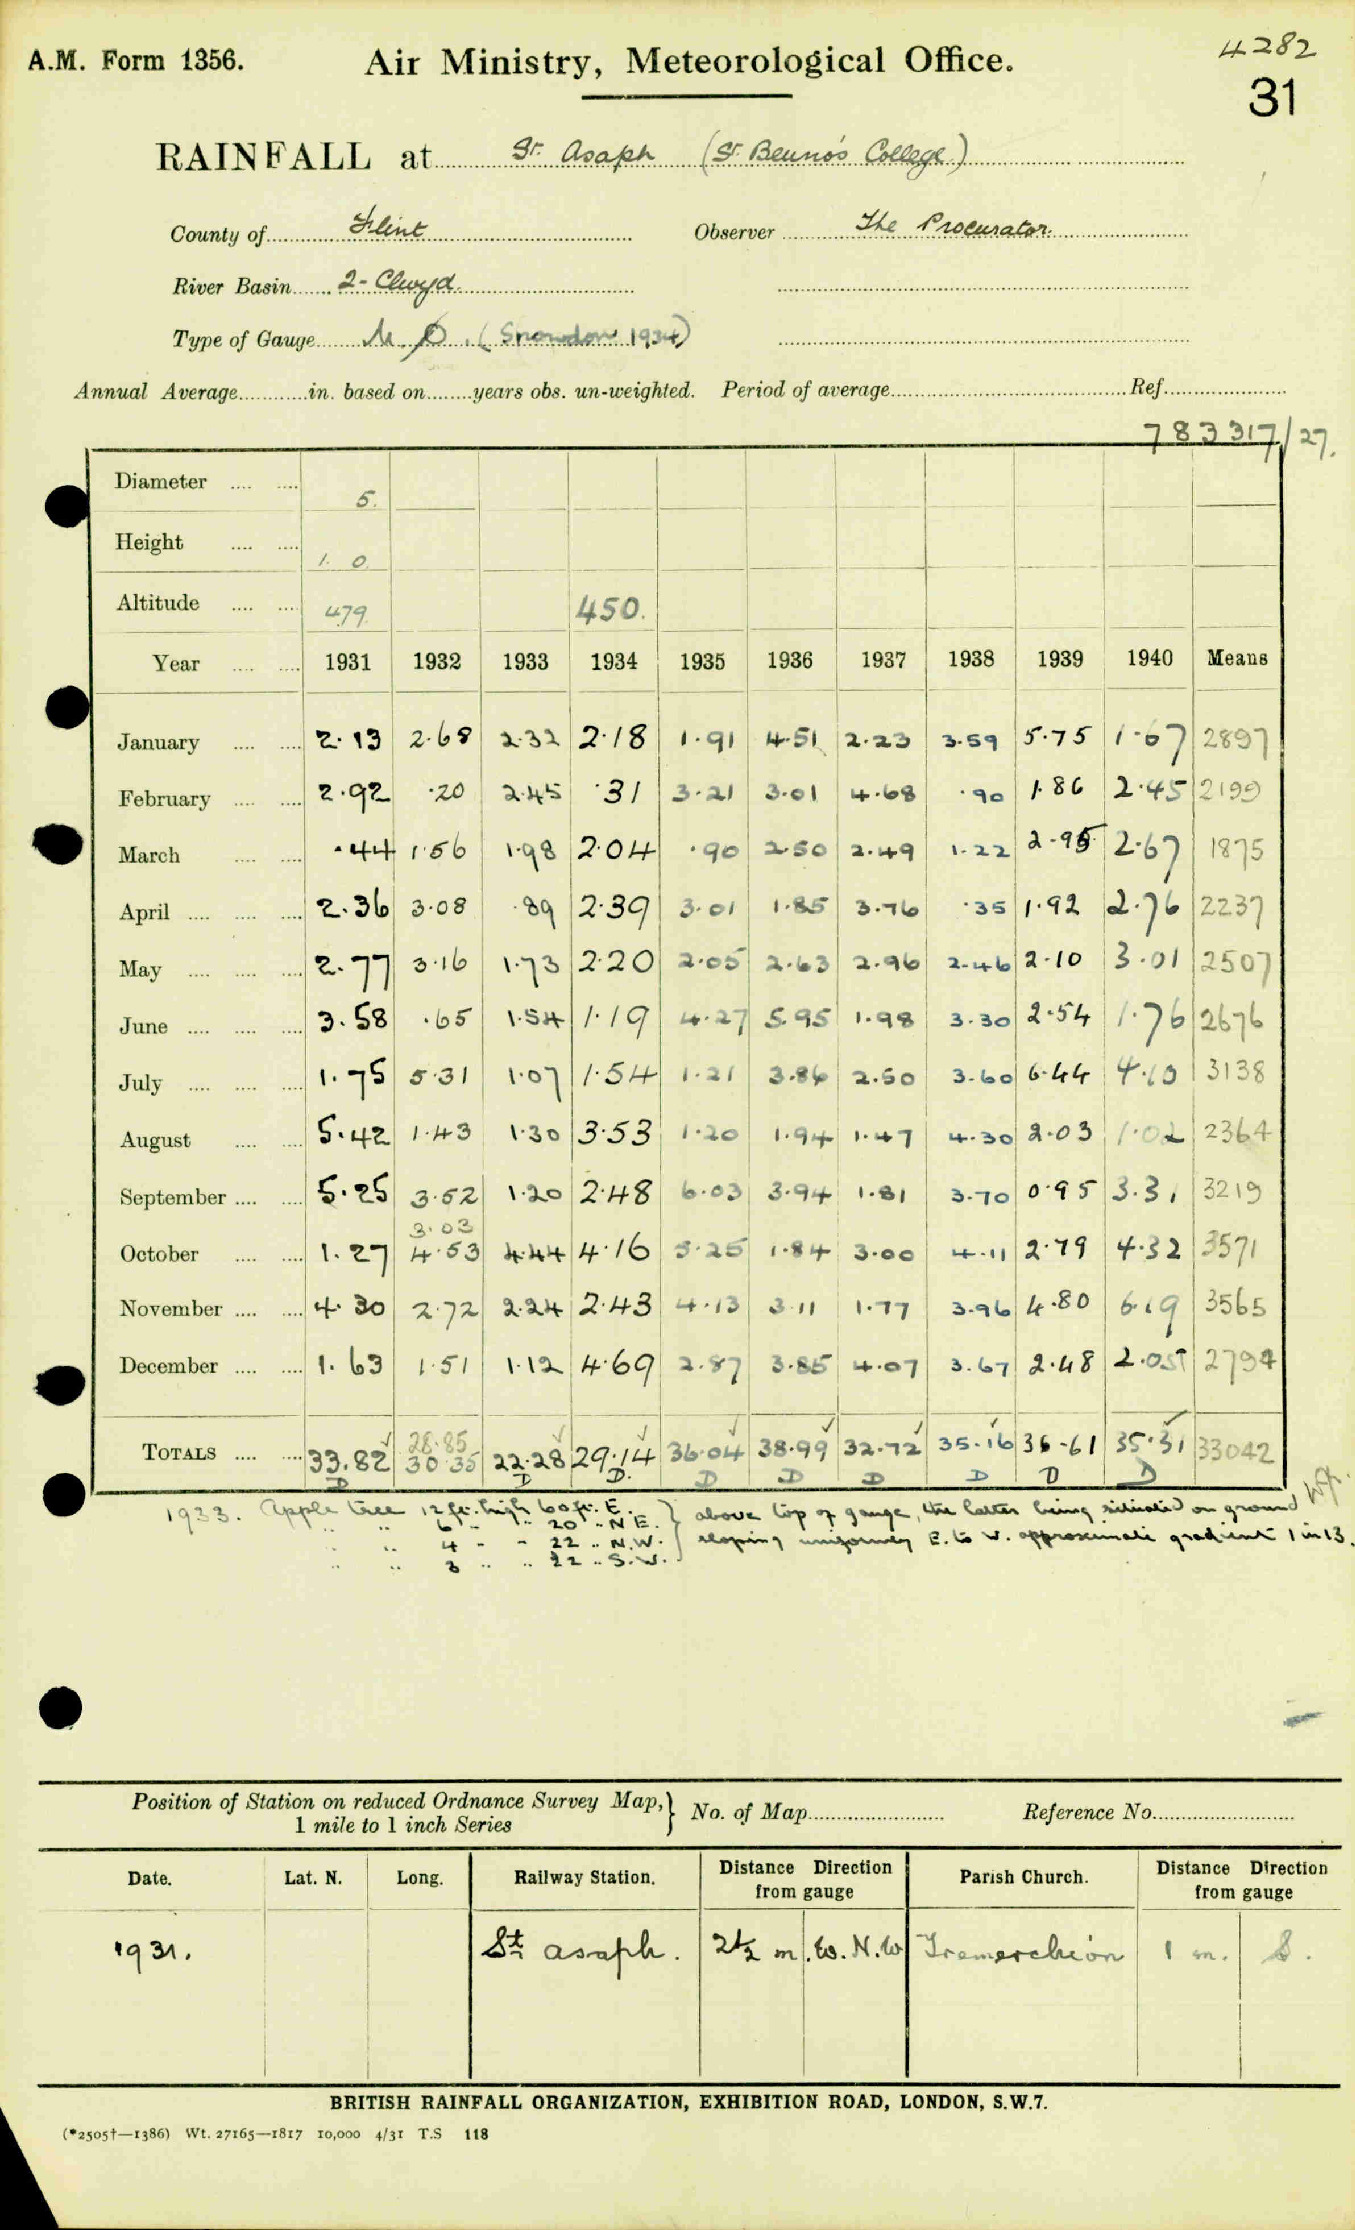 A.M. Form 1356.
Air Ministry, Meteorological Office.
4282
31
RAINFALL at St. Asaph (St Beuno's College)
County of Flint
Observer The Procurator.
River Basin 2 - Clwyd
Type of Gauge M.O. (Snowdon 1934)
Annual Average in. based on years obs. un-weighted. Period of average Ref.
783317/27.
Diameter 5.
Height 1. 0.
Altitude 479. 450.
Year 1931 1932 1933 1934 1935 1936 1937 1938 1939 1940 Means
January 2.13 2.68 2.32 2.18 1.91 4.51 2.23 3.59 5.75 1.67 2897
February 2.92 .20 2.45 .31 3.21 3.01 4.68 .90 1.86 2.45 2199
March .44 1.56 1.98 2.04 .90 2.50 2.49 1.22 2.95 2.67 1875
April 2.36 3.08 .89 2.39 3.01 1.85 3.76 .35 1.92 2.76 2237
May 2.77 3.16 1.73 2.20 2.05 2.63 2.96 2.46 2.10 3.01 2507
June 3.58 .65 1.54 1.19 4.27 5.95 1.98 3.30 2.54 1.76 2676
July 1.75 5.31 1.07 1.54 1.21 3.86 2.50 3.60 6.44 4.10 3138
August 5.42 1.43 1.30 3.53 1.20 1.94 1.47 4.30 2.03 1.02 2364
September 5.25 3.52 1.20 2.48 6.03 3.94 1.81 3.70 0.95 3.31 3219
3.03
October 1.27 4.53 4.44 4.16 5.25 1.84 3.00 4.11 2.79 4.32 3571
November 4.30 2.72 2.24 2.43 4.13 3.11 1.77 3.96 4.80 6.19 3565
December 1.63 1.51 1.12 4.69 2.87 3.85 4.07 3.67 2.48 2.05 2794
28.85
TOTALS 33.82 30.35 22.28 29.14 36.04 38.99 32.72 35.16 36.61 35.31 33042
D D D. D D D D D D
1933. Apple tree 12 ft. high 60 ft. E. } above top of gauge, the latter being situated on ground
" " 6 " " 20 " N.E. } sloping uniformly E. to W. approximate gradient 1 in 13.
" " 4 " " 22 " N.W.
" " 3 " " 22 " S.W.
Position of Station on reduced Ordnance Survey Map, } No. of Map Reference No.
1 mile to 1 inch Series
Date. Lat. N. Long. Railway Station. Distance Direction from gauge Parish Church. Distance Direction from gauge
1931. St. Asaph. 2½ m. W.N.W Tremerchion 1 m. S.
BRITISH RAINFALL ORGANIZATION, EXHIBITION ROAD, LONDON, S.W.7.
(*2505†—1386) Wt. 27165—1817 10,000 4/31 T.S 118